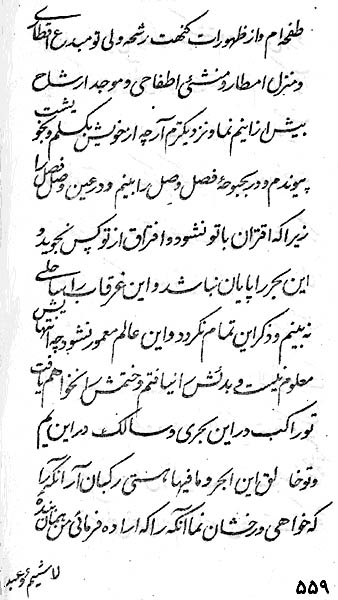 طفحه‌ام و از ظهورات کنهت رشحه ولی تو مبدع اقطاری
و منزل امطار و منشئی اطفاحی و موجد ارشاح
بیش از اینم نما و نزدیکترم آر چه از خویش بگسلم و بخویشت
پیوندم و در بحبوحهٔ فصل وصل را بینم و در عین وصل فصل را
زیرا که اقتران با تو نشود و افتراق از تو کس نجوید و
این بحر را پایان نباشد و این غرقاب را ساحلی
نه بینم و ذکر این تمام نگردد و این عالم معمور نشود چه انتهایش
معلوم نیست و بدئش را نیافتم و ختمش را نخواهم یافت
تو راکب در این بحری و سالک در این یم
و تو خالق این ابحر و ما فیها هستی رکبان آر آنکه را
که خواهی و رخشان نما آنکه را که اراده فرمائی من همان بنده
لاشیم و عبد
۵۵۹